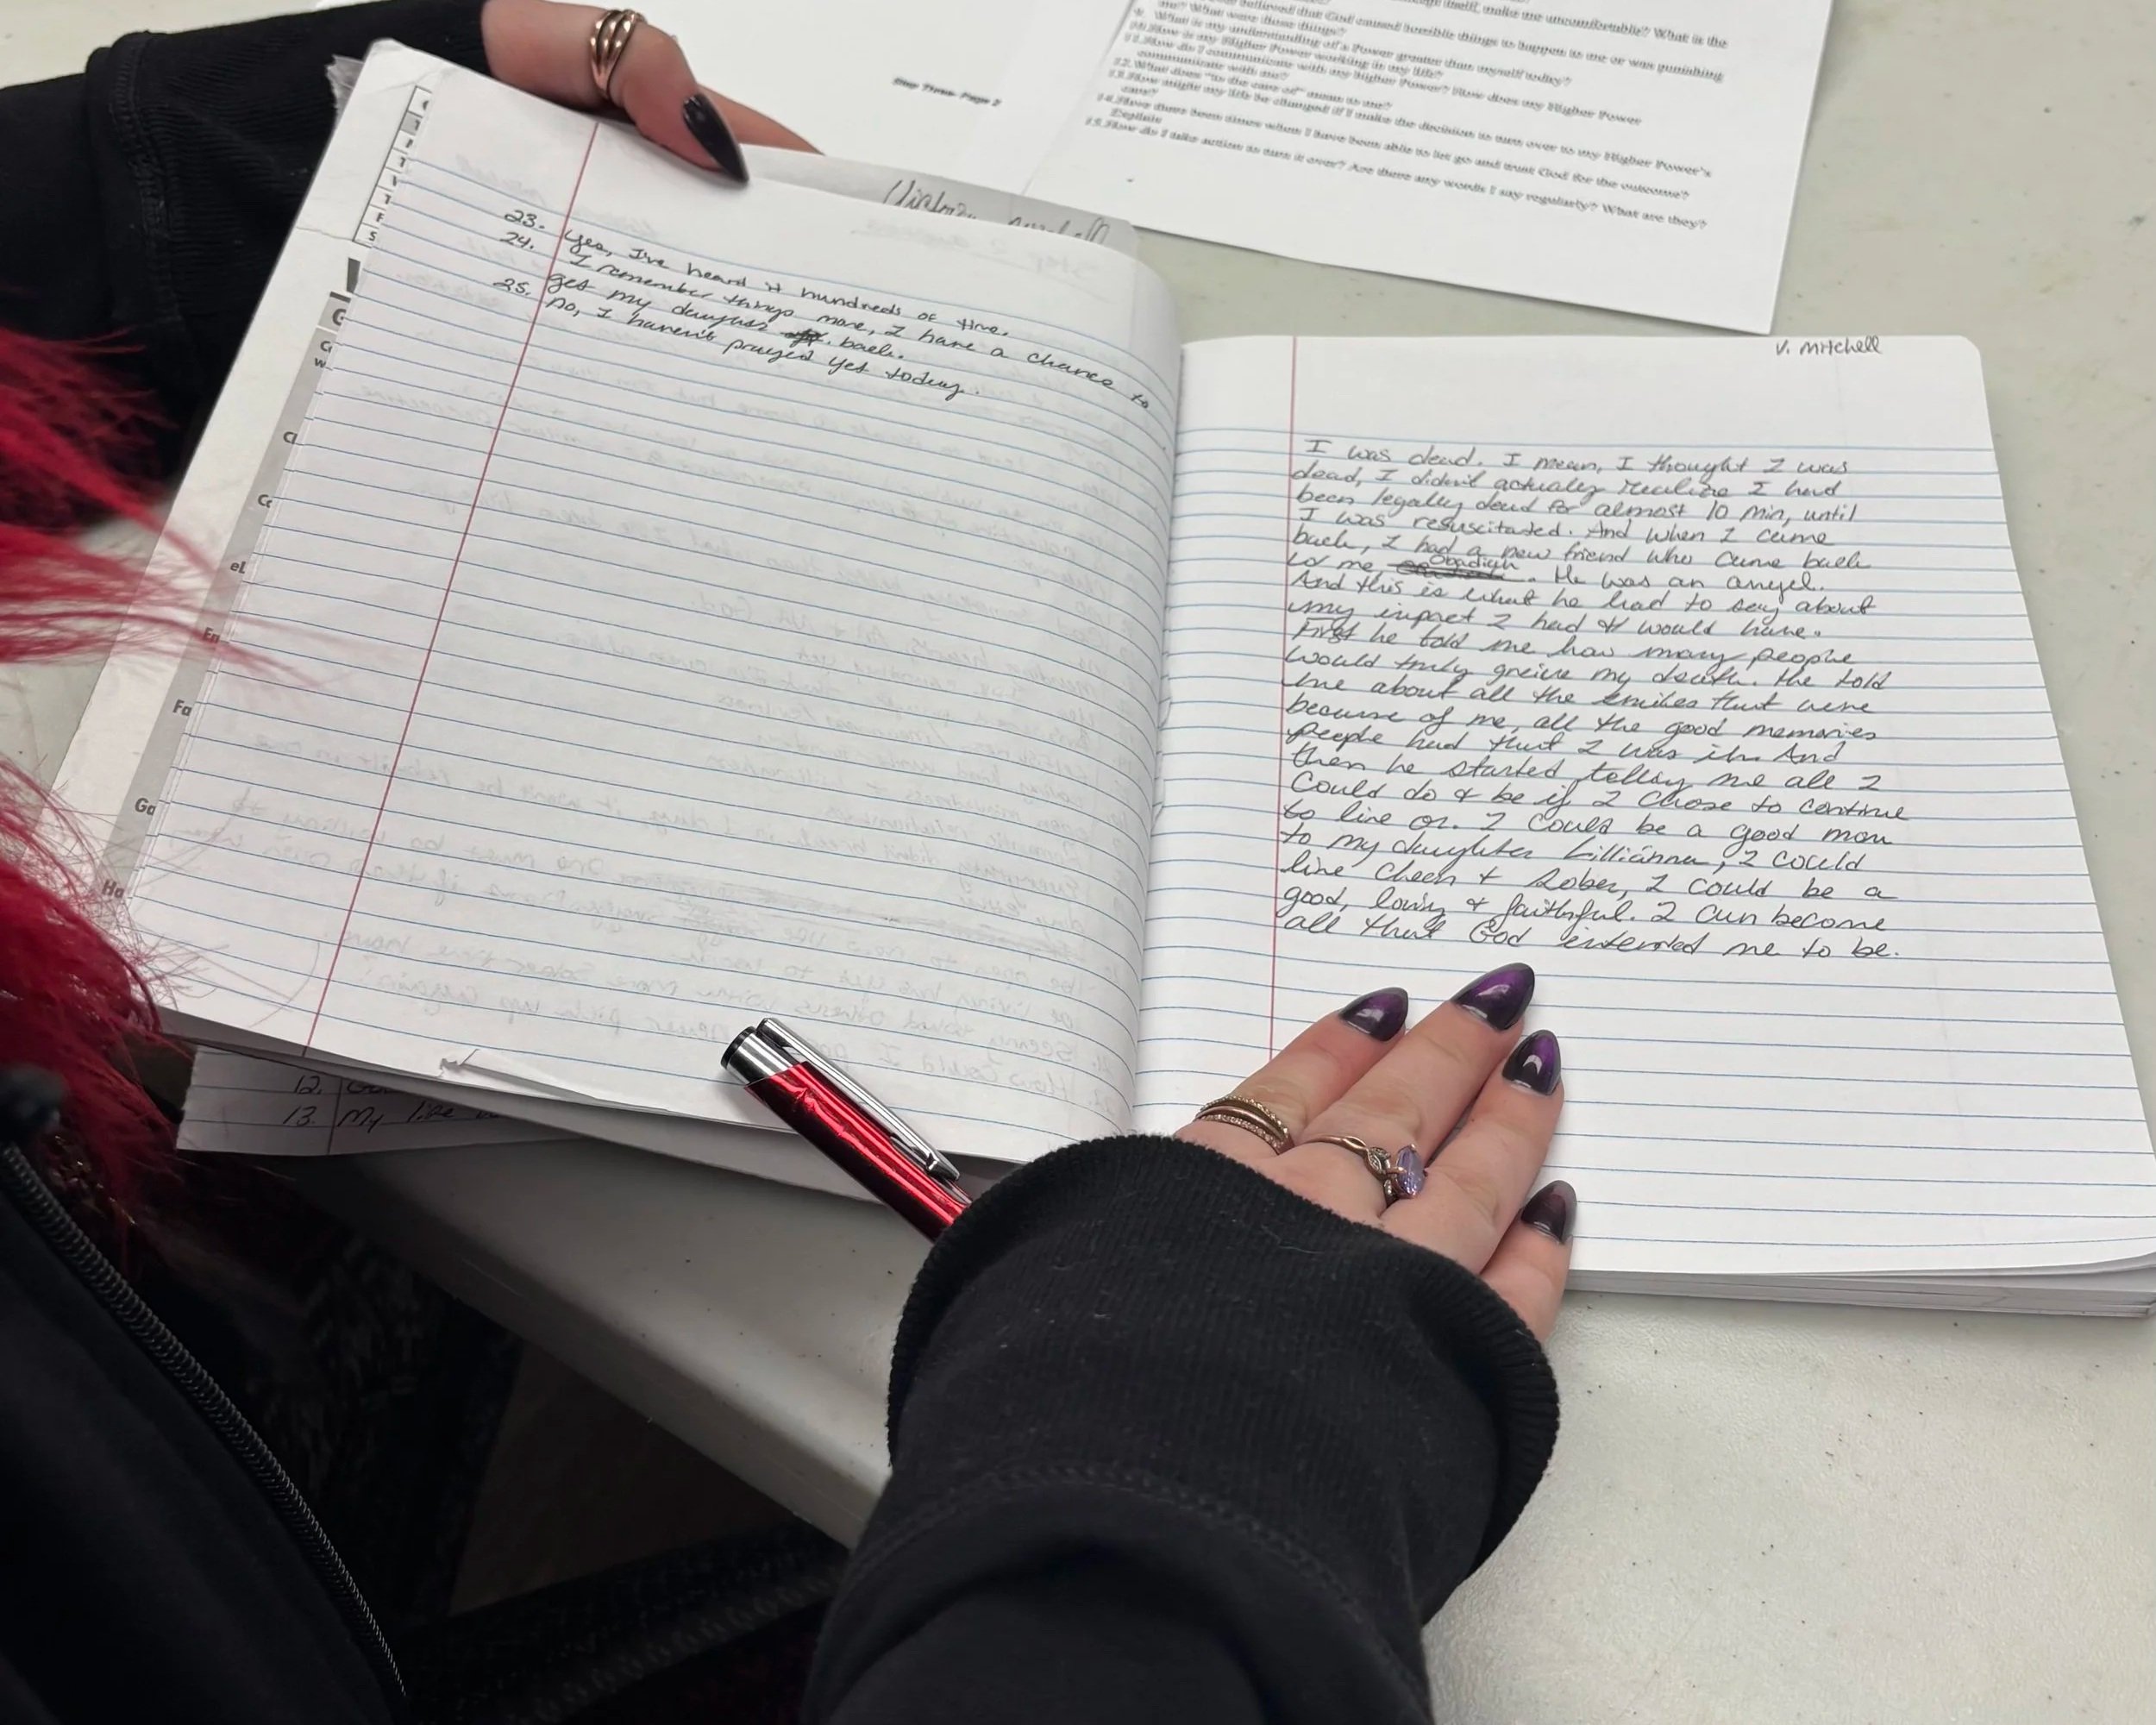 itself, make me uncomfortable? What is the
believed that God caused horrible things to happen to me or was punishing
me? What were those things?
What is my understanding of a Power greater than myself today?
How is my Higher Power working in my life?
11. How do I communicate with my higher Power? How does my Higher Power
communicate with me?
12. What does "to the care of" mean to me?
13. How might my life be changed if I make the decision to turn over to my Higher Power's
care?
14. Have there been times when I have been able to let go and trust God for the outcome?
Explain
15. How do I take action to turn it over? Are there any words I say regularly? What are they?
Step Three- Page 2
23. Yes, I've heard it hundreds of time.
24. I remember things more, I have a chance to
get my daughter back.
25. no, I haven't prayed yet today.
V. Mitchell
I was dead. I mean, I thought I was
dead, I didn't actually realize I had
been legally dead for almost 10 min, until
I was resuscitated. And when I came
back, I had a new friend who came back
w/ me, Obadiah. He was an angel.
And this is what he had to say about
my impact I had & would have.
First he told me how many people
would truly greive my death. He told
me about all the smiles that were
because of me, all the good memories
people had that I was in. And
then he started telling me all I
could do & be if I chose to continue
to live on. I could be a good mom
to my daughter Lillianna, I could
live clean & sober, I could be a
good, loving & faithful. I can become
all that God intended me to be.
12.
13. My life